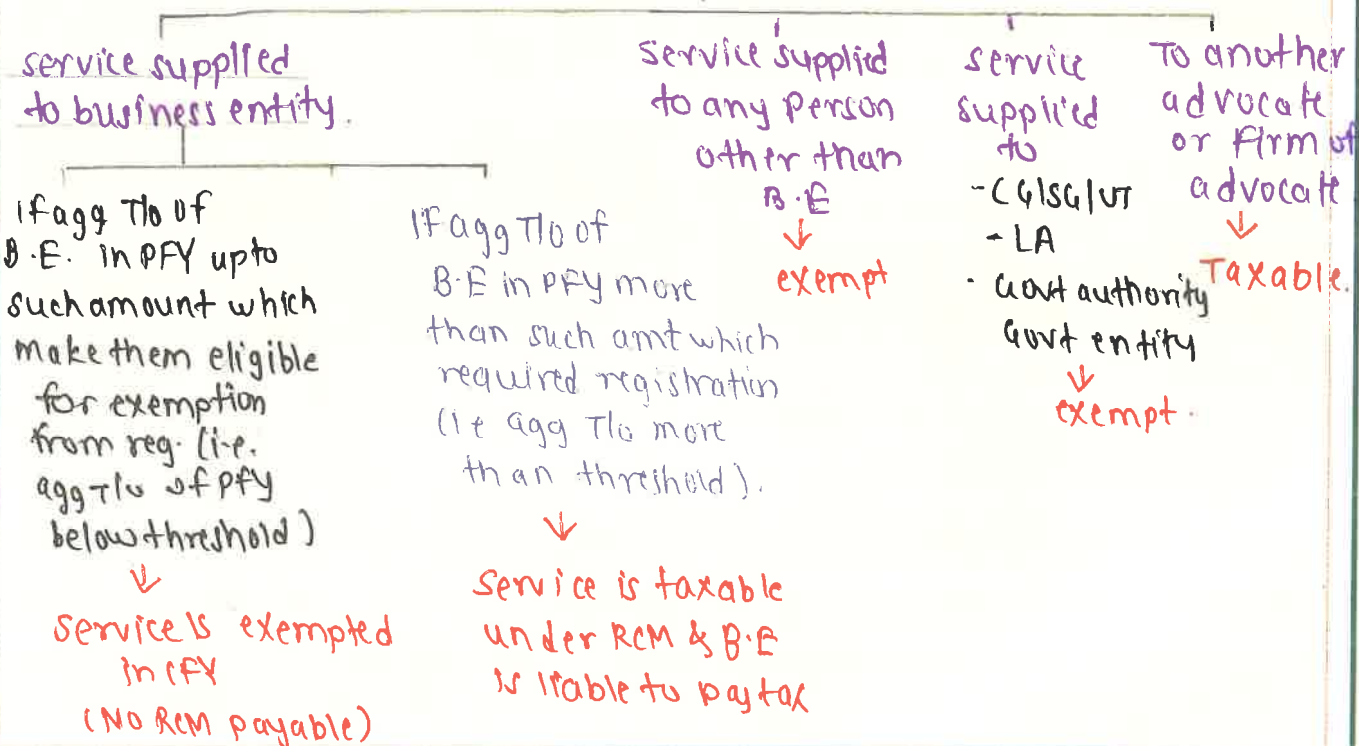 service supplied
to business entity.
If agg T/o of
B.E. in PFY upto
such amount which
make them eligible
for exemption
from reg. (i.e.
agg T/o of PFY
below threshold)
service is exempted
in CFY
(NO RCM payable)
If agg T/o of
B.E in PFY more
than such amt which
required registration
(i.e agg T/o more
than threshold).
Service is taxable
under RCM & B.E
is liable to pay tax
service supplied
to any person
other than
B.E
exempt
service
supplied
to
- CG/SG/UT
- LA
- Govt authority
Govt entity
exempt.
To another
advocate
or Firm of
advocate
Taxable.